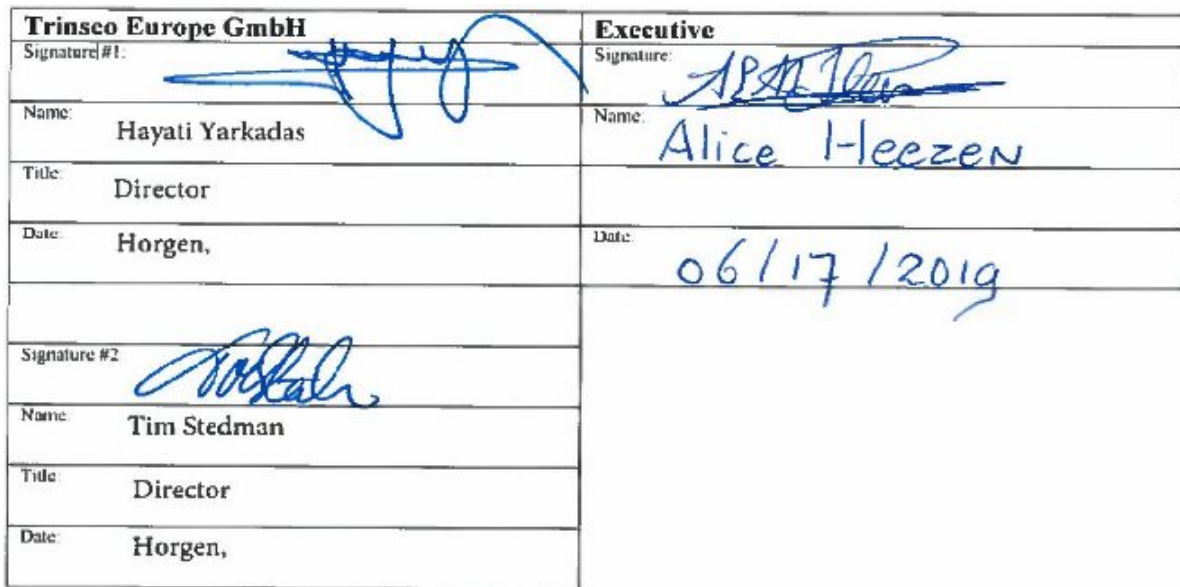 Trinseo Europe GmbH
Signature #1:
Name: Hayati Yarkadas
Title: Director
Date: Horgen,
Signature #2
Name: Tim Stedman
Title: Director
Date: Horgen,
Executive
Signature:
Name: Alice Heezen
Date: 06/17/2019